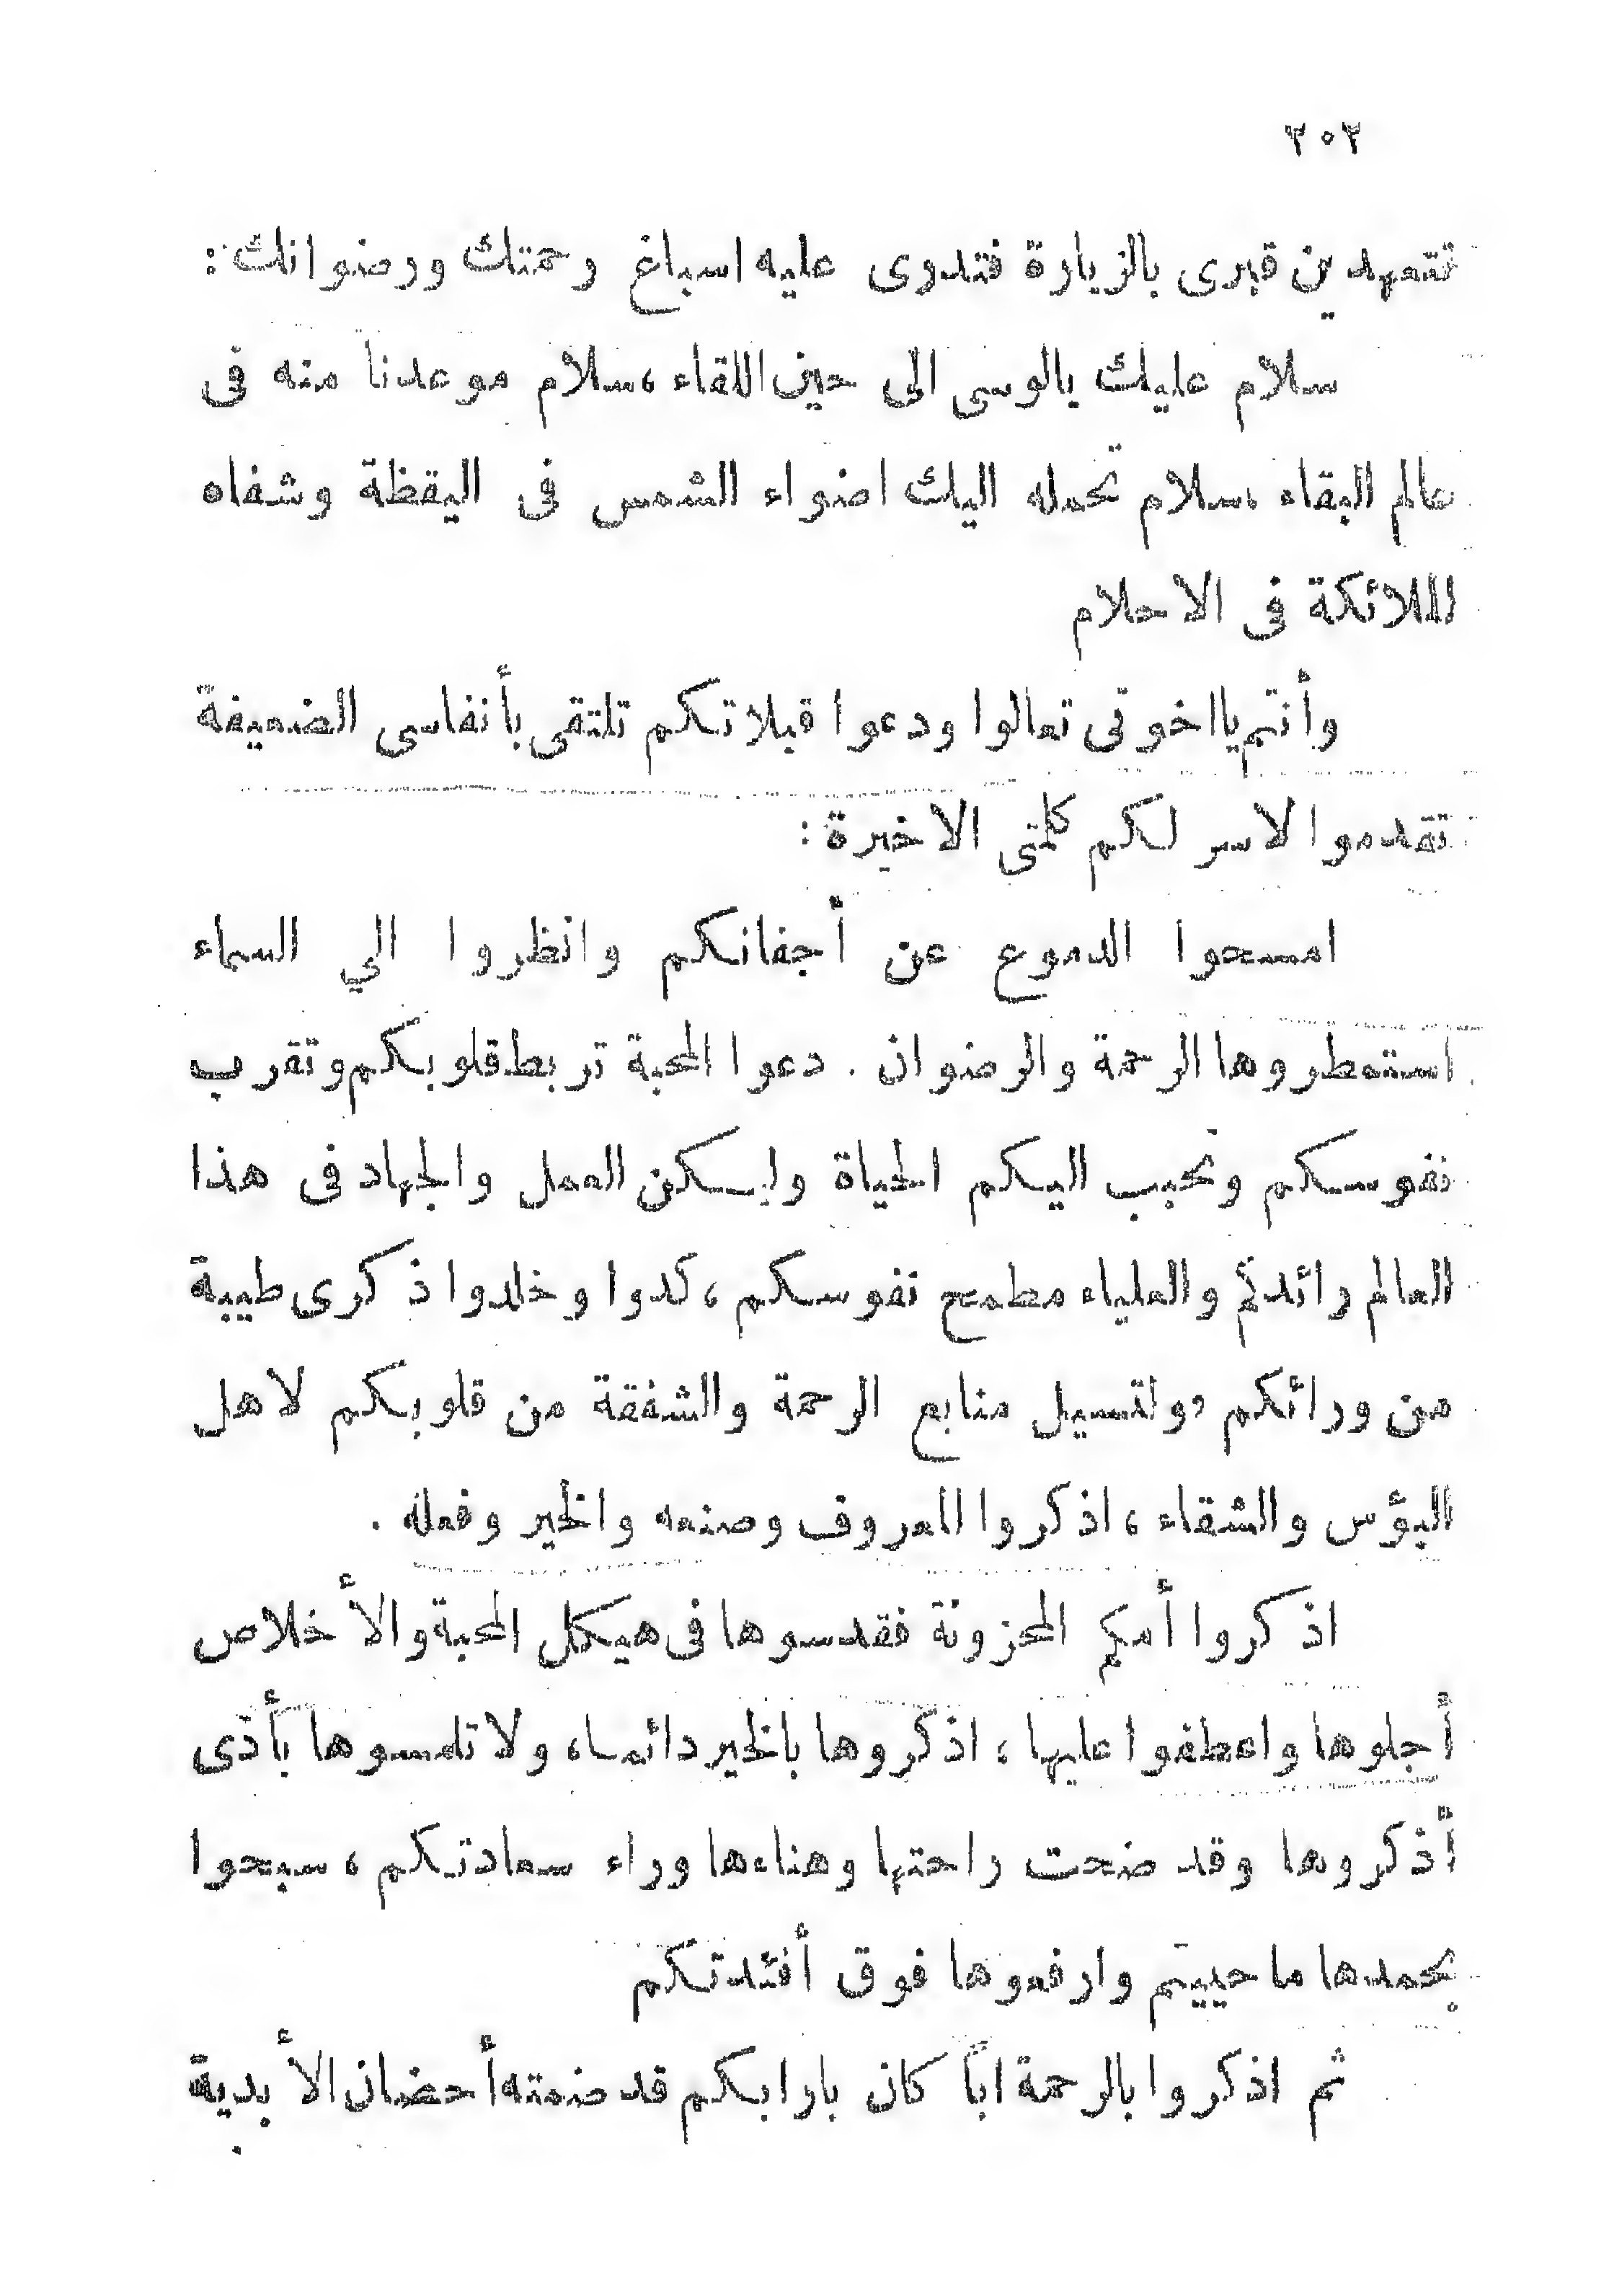 ٢٠٢
تتعهدين قبرى بالزيارة فتدوى عليه اسباغ رحمتك ورضوانك :
سلام عليك يالوسى الى حين اللقاء ، سلام موعدنا منه فى
عالم البقاء ، سلام تحمله اليك اضواء الشمس فى اليقظة وشفاه
الملائكة فى الاحلام
وأنتم يااخوتى تعالوا ودعوا قبلاتكم تلتقى بأنفاسى الضعيفة
تقدموا لاسر لكم كلمتى الاخيرة :
امسحوا الدموع عن أجفانكم وانظروا الي السماء
استمطروها الرحمة والرضوان . دعوا المحبة تربط قلوبكم وتقرب
نفوسكم وتحبب اليكم الحياة وليكن العمل والجهاد فى هذا
العالم رائدكم والعلياء مطمح نفوسكم ، كدوا وخلدوا ذكرى طيبة
من ورائكم ولتسيل منابع الرحمة والشفقة من قلوبكم لاهل
البؤس والشقاء ، اذكروا المعروف وصنعه والخير وفعله .
اذكروا أمكم المحزونة فقدسوها فى هيكل المحبة والأخلاص
أجلوها واعطفوا عليها ، اذكروها بالخير دائما ، ولا تلمسوها بأذى
أذكروها وقد ضحت راحتها وهناءها وراء سعادتكم ، سبحوا
بحمدها ما حييتم وارفعوها فوق أفئدتكم
ثم اذكروا بالرحمة اباً كان بارا بكم قد ضمته أحضان الأبدية